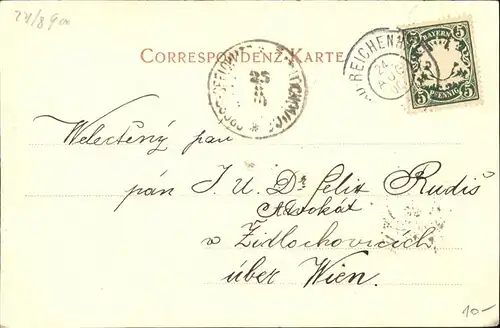 24/8 900
CORRESPONDENZ-KARTE
REICHENH
24
AUG
BAYERN
5 5
PFENNIG
25
Welectěný pan
pán J. U. Dr. Felix Rudiš
Advokát
v Židlochovicích
über Wien.
10-